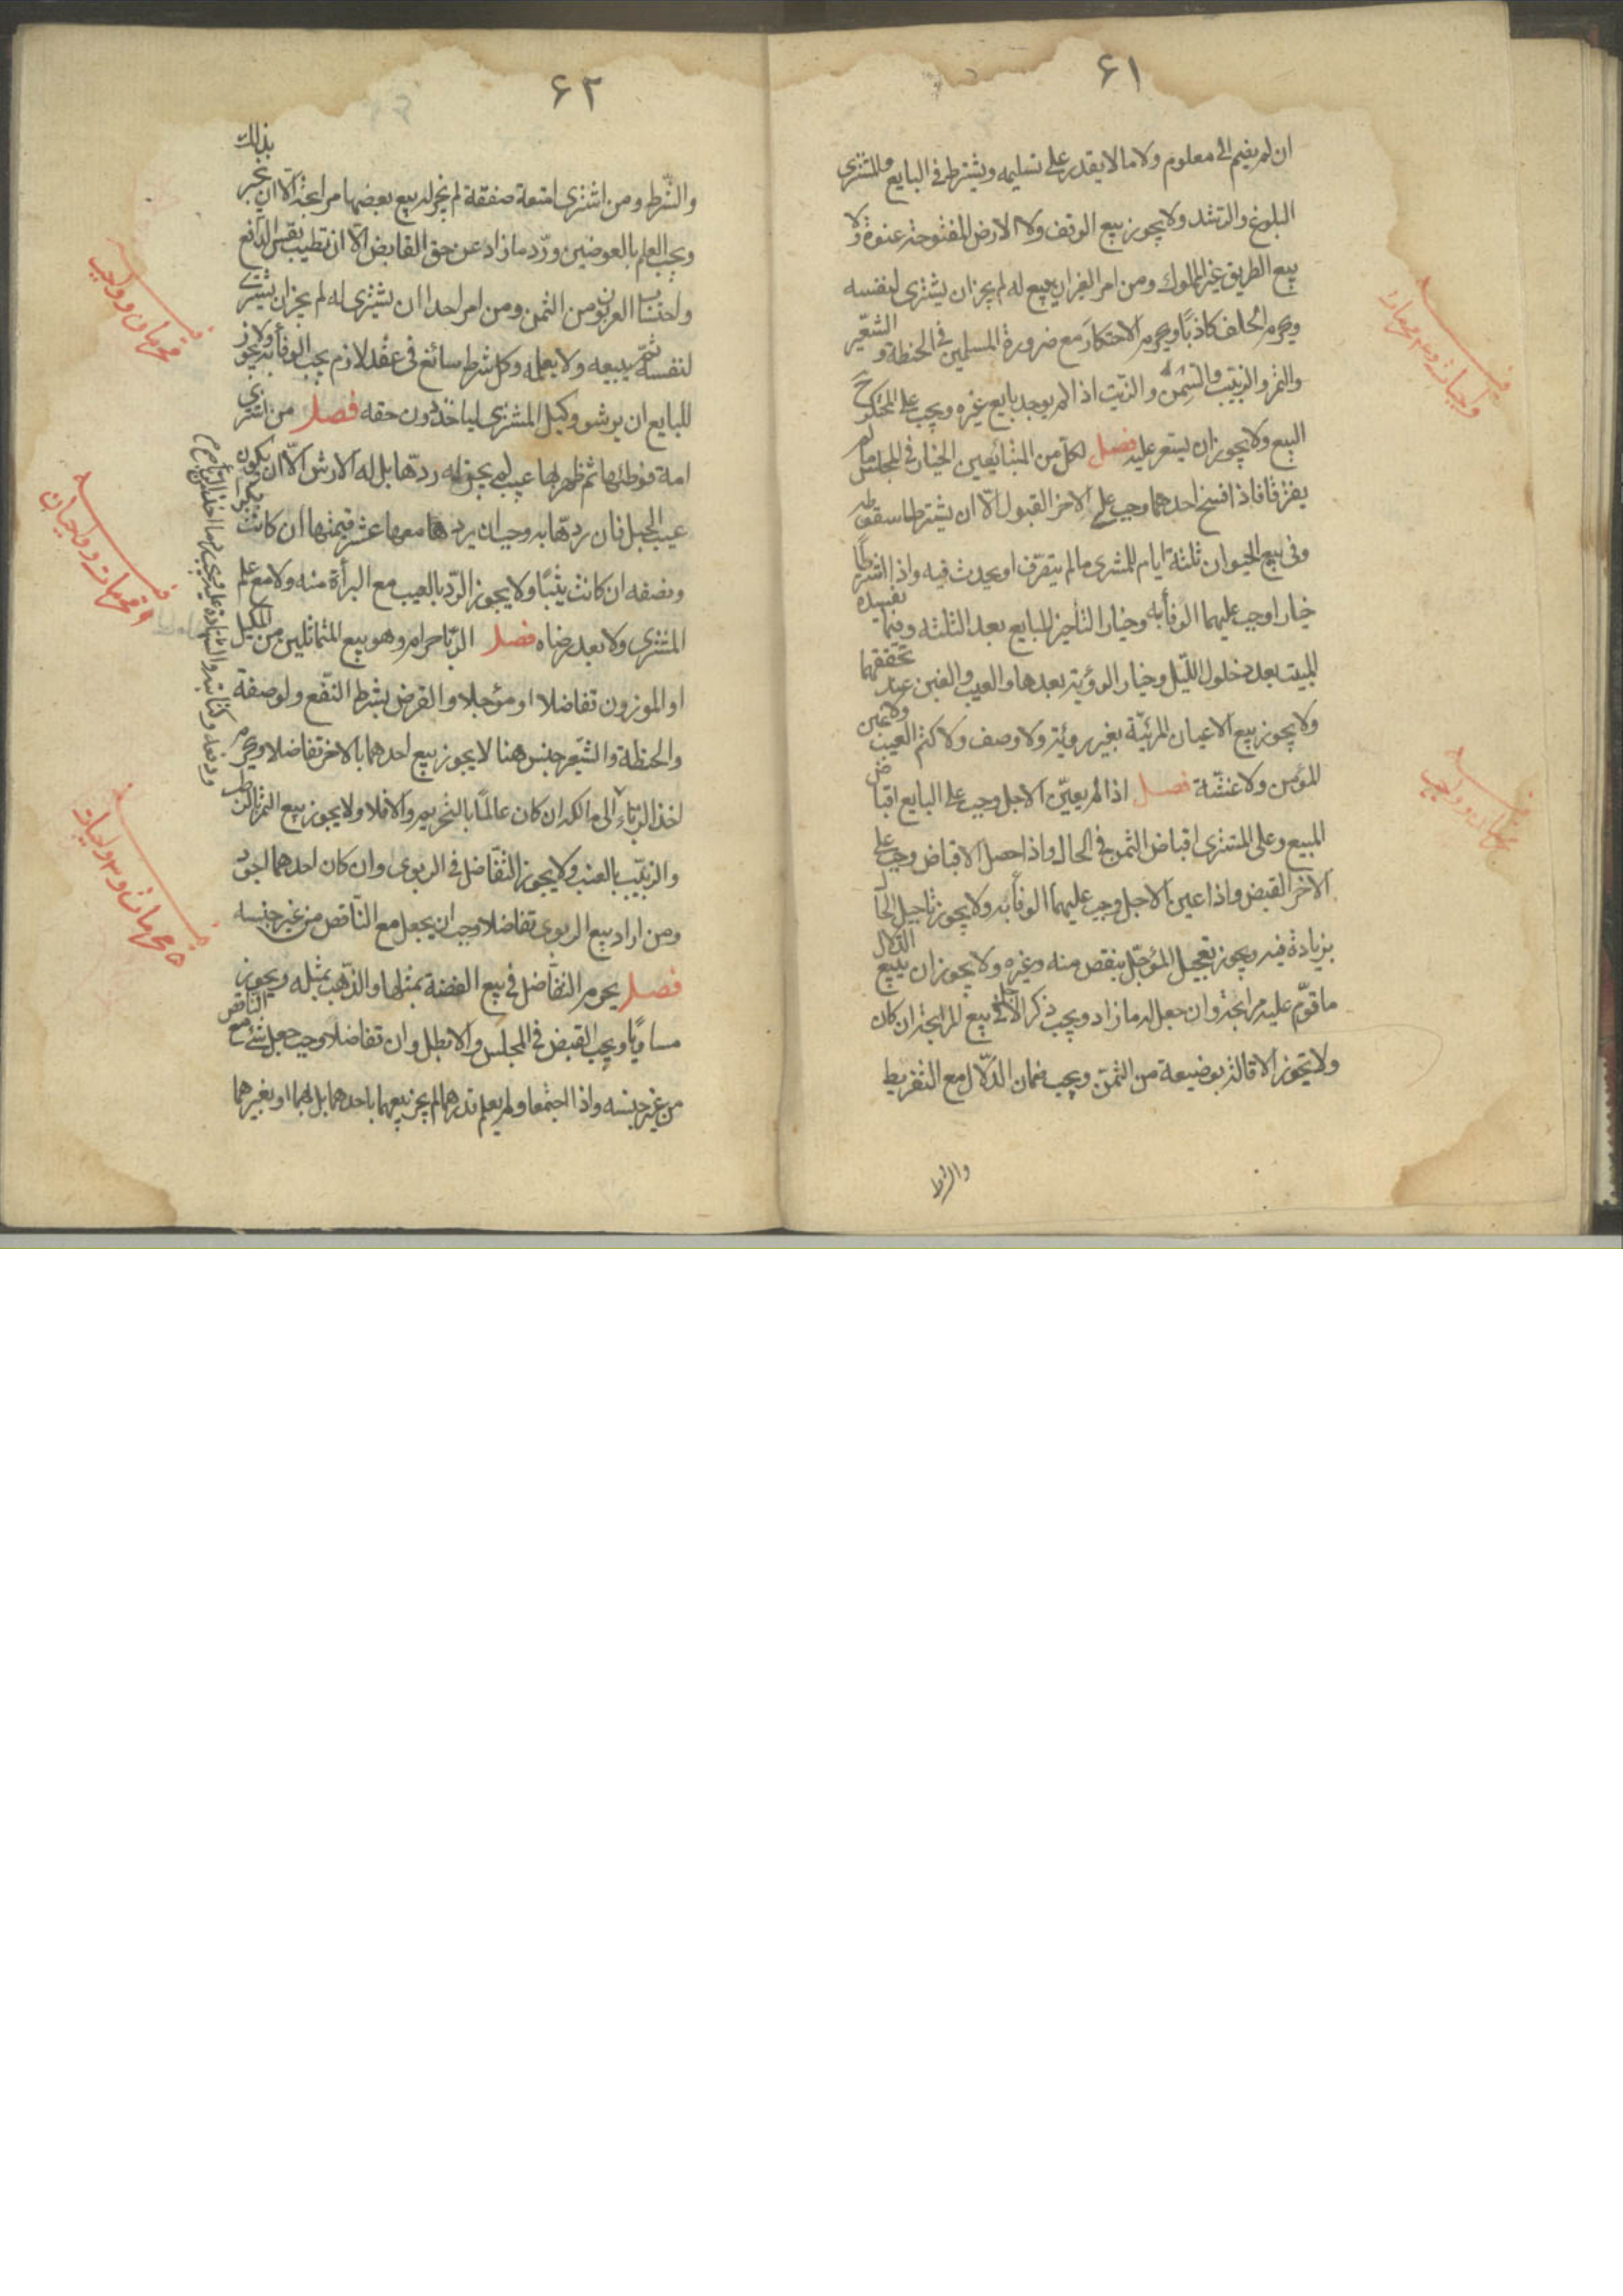 ۶۱
ان لم يضم الى معلوم ولا ما لا يقدر على تسليمه ويشترط في البايع والمشترى
البلوغ والرشد ولا يجوز بيع الوقف ولا الارض المفتوحة عنوة ولا
بيع الطريق غير المملوك ومن امر الغير ان يبيع له لم يجز ان يشترى لنفسه
ويحرم الحلف كاذبًا ويحرم الاحتكار مع ضرورة المسلمين في الحنطة و الشعير
والتمر والزبيب والسمن والزيت اذا لم يوجد بايع غيره ويجب على المحتكر ح
البيع ولا يجوز ان يسعر عليه فصل لكل من المتبايعين الخيار في المجلس ما لم
يفترقا فاذا فسخ احدهما وجب على الاخر القبول الّا ان يشترطا سقوطه
وفى بيع الحيوان ثلثة ايام للمشترى ما لم يتصرّف او يحدث فيه واذا اشترطا
خيارا وجب عليهما الوفأ به وخيار التأخير للبايع بعد الثلثه وفيما يفسده
المبيت بعد دخول اللّيل وخيار الرؤية بعدها والعيب والغبن عند تحققهما
ولا يجوز بيع الاعيان المرئيّة بغير رؤية ولا وصف ولا كتم العيب ولا غبن
المؤمن ولا غشّه فصل اذا لم يعيّن الاجل وجب على البايع اقباض
المبيع وعلى المشترى اقباض الثمن في الحال واذا حصل الاقباض وجب على
الاخر القبض واذا عين الاجل وجب عليهما الوفأ به ولا يجوز تاجيل الحال
بزيادة فيه ويجوز تعجيل المؤجّل بنقص منه وغيره ولا يجوز ان يبيع الدلال
ما قوّم عليه مرابحة وان جعل له ما زاد ويجب ذكر الاجل في بيع المرابحة ان كان
ولا يجوز الاقالة بوضيعة من الثمن ويجب ضمان الدلّال مع التفريط
والشرط
۶۲
والشّرط ومن اشترى امتعة صفقة لم يجز له بيع بعضها مرابحة الّا ان يخبر بذلك
ويجب العلم بالعوضين وردّ ما زاد عن حق القابض الّا ان تطيب نفس الدافع
واحتساب العربون من الثمن ومن امر احدا ان يشترى له لم يجز ان يشترى
لنفسه ثم يبيعه ولا يعلمه وكل شرط سائغ فى عقد لازم يجب الوفأ به ولا يجوز
للبايع ان يرشو وكيل المشترى لياخذ دون حقه فصل من اشترى
امة فوطئها ثم ظهر بها عيب لم يجز له ردّها بل له الارش الّا ان يكون
عيب الحبل فان ردّها به وجب ان يردها معها عشر قيمتها ان كانت بكرا
ونصفه ان كانت ثيّبًا ولا يجوز الردّ بالعيب مع البرأة منه ولا مع علم
المشترى ولا بعد رضاه فصل الربا حرام وهو بيع المتماثلين من المكيل
او الموزون تفاضلا او مؤجلا والقرض بشرط النّفع ولو صفة
والحنطة والشّعير جنس هنا لا يجوز بيع احدهما بالاخر تفاضلا ويحرم
اخذ الربا الى مالكه ان كان عالمًا بالتحريم والا فلا ولا يجوز بيع التمر بالرطب
والزبيب بالعنب ولا يجوز التفاضل في الربوى وان كان احدهما اجود
ومن اراد بيع الربوى تفاضلا وجب ان يجعل مع النّاقص من غير جنسه
فصل يحرم التفاضل في بيع الفضة بمثلها والذّهب بمثله ويجوز
مساويًا ويجب القبض في المجلس والا بطل وان تفاضلا وجب جعل شئ مع الناقص
من غير جنسه واذا اجتمعا ولم يعلم قدرهما لم يجز بيعهما باحدهما بل بهما او بغيرهما